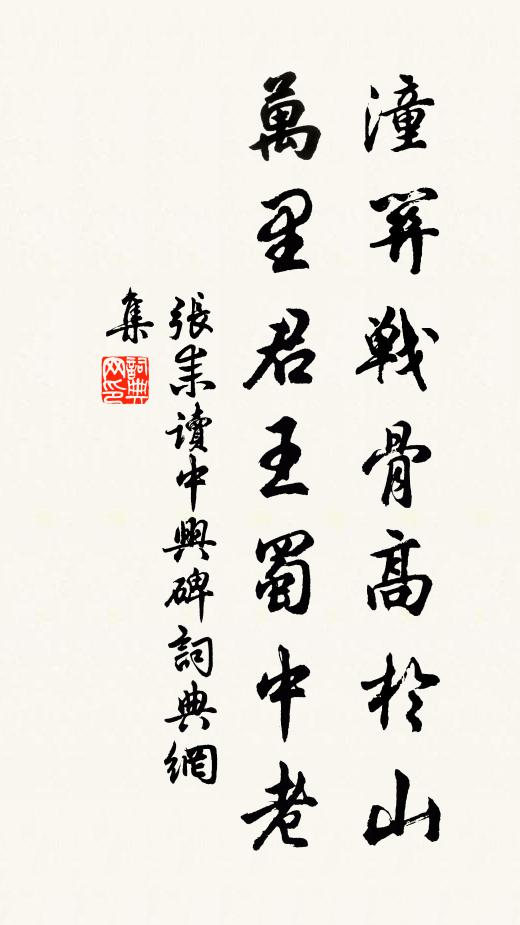 潼關戰骨高於山
萬里君王蜀中老
張耒讀中興碑詞典網
集
詞典網印